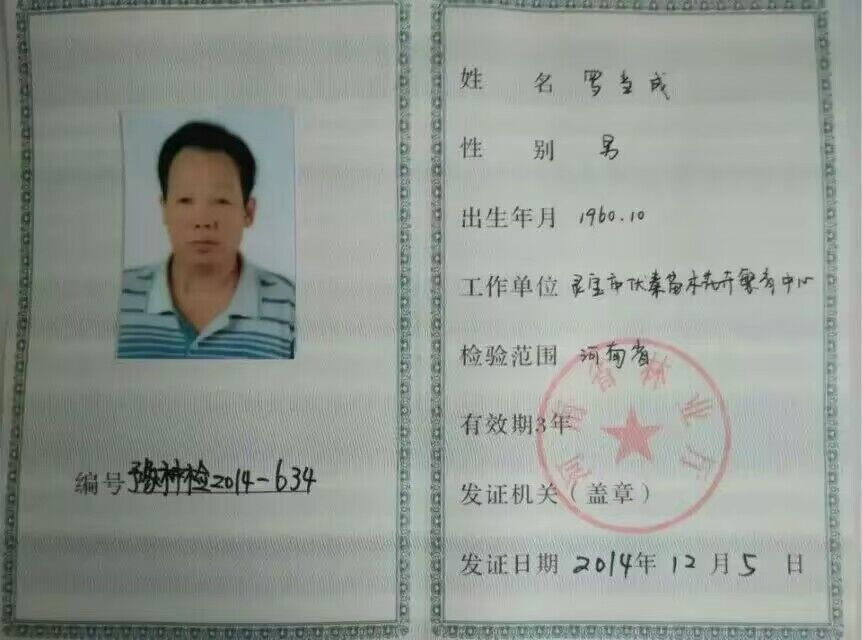 编号 豫林种检2014-634
姓 名 罗当成
性 别 男
出生年月 1960.10
工作单位 灵宝市伏秦苗木花卉繁育中心
检验范围 河南省
有效期3年
发证机关（盖章）
河南省林业厅
发证日期 2014年12月5日